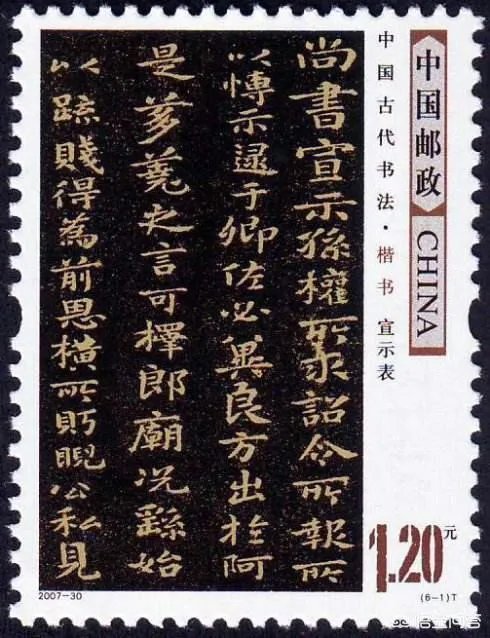 中国邮政 CHINA
中国古代书法·楷书 宣示表
尚書宣示孫權所求詔令所報所
以博示逮于卿佐必冀良方出於阿
是芻蕘之言可擇郎廟況繇始
以疏賤得為前恩橫所盼睨公私見
1.20元
2007-30
(6-1)T